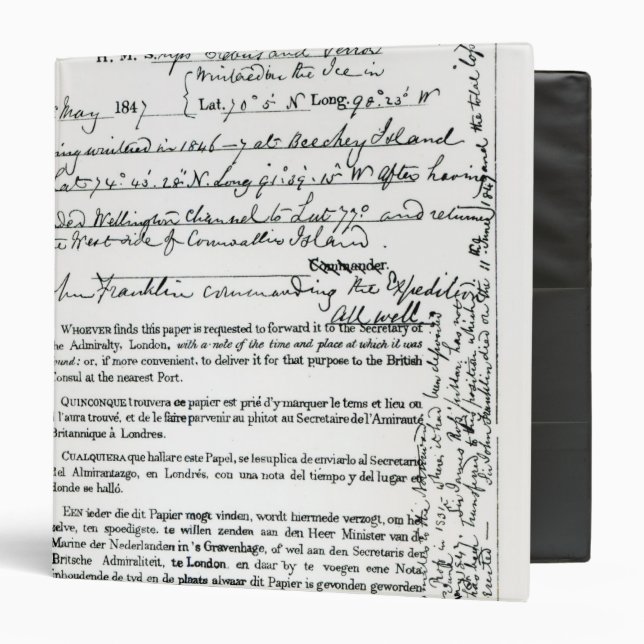 H. M. Ships Erebus and Terror
Wintered in the Ice in
May 1847 Lat. 70° 5' N Long. 98° 23' W
wintered in 1846-7 at Beechey Island
Lat 74° 43' 28" N. Long 91° 39' 15" W after having
Wellington Channel to Lat 77° and returned
West side of Cornwallis Island.
Commander.
Franklin commanding the Expedition
All well
WHOEVER finds this paper is requested to forward it to the Secretary of
the Admiralty, London, with a note of the time and place at which it was
found: or, if more convenient, to deliver it for that purpose to the British
Consul at the nearest Port.
QUINCONQUE trouvera ce papier est prié d'y marquer le tems et lieu ou
il l'aura trouvé, et de le faire parvenir au phitot au Secretaire de l'Amirauté
Britannique à Londres.
CUALQUIERA que hallare este Papel, se lesuplica de enviarlo al Secretario
del Almirantazgo, en Londrés, con una nota del tiempo y del lugar en
donde se halló.
EEN ieder die dit Papier mogt vinden, wordt hiermede verzogt, om het
selve, ten spoedigste, te willen zenden aan den Heer Minister van de
Marine der Nederlanden in 's Gravenhage, of wel aan den Secretaris der
Britsche Admiraliteit, te London, en daar by te voegen eene Nota
inhoudende de tyd en de plaats alwaar dit Papier is gevonden geworden
where it had been deposited
Sir James Ross' pillar has not
has been transferred to this position which
erected — Sir John Franklin died on the 11th June 1847 and the total loss